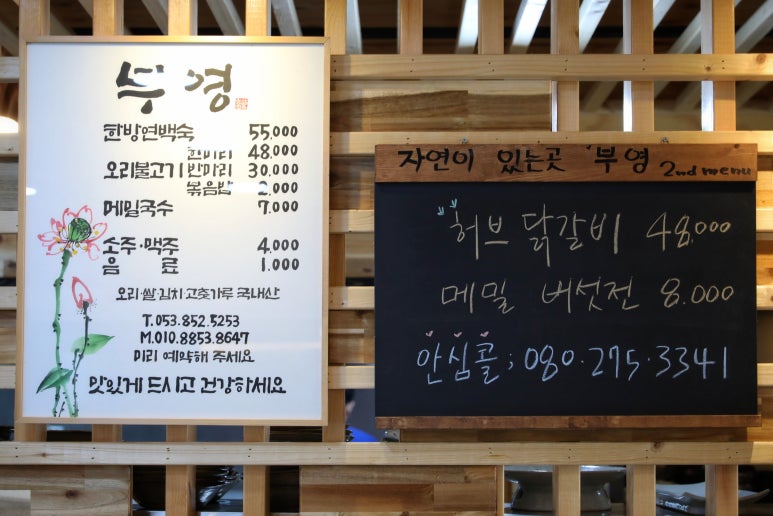 부영
한방연백숙 55.000
한마리 48.000
오리불고기 반마리 30.000
볶음밥 2.000
메밀국수 7.000
소주·맥주 4.000
음료 1.000
오리·쌀·김치 고춧가루 국내산
T.053.852.5253
M.010.8853.8647
미리 예약해 주세요
맛있게 드시고 건강하세요
자연이 있는곳 '부영 2nd menu
"허브 닭갈비 48.000
메밀 버섯전 8.000
안심콜; 080·275·3341